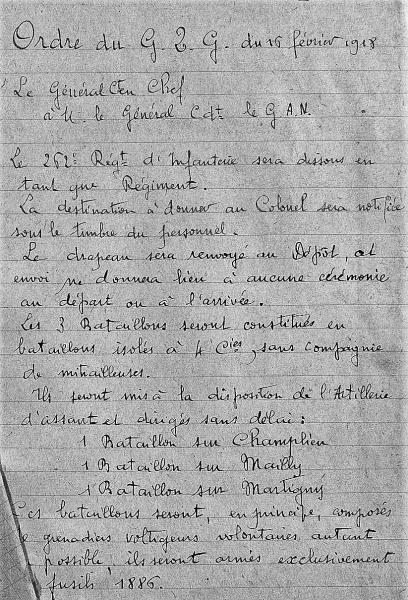 Ordre du G. Q. G. du 16 février 1918
Le Général Cen Chef
à M. le Général Cdt le G.A.N.
Le 262e Regt d'Infanterie sera dissous en
tant que Régiment.
La destination à donner au Colonel sera notifiée
sous le timbre du personnel.
Le drapeau sera renvoyé au Dépôt, cet
envoi ne donnera lieu à aucune cérémonie
au départ ou à l'arrivée.
Les 3 Bataillons seront constitués en
bataillons isolés à 4 Cies, sans compagnie
de mitrailleuses.
Ils seront mis à la disposition de l'Artillerie
d'assaut et dirigés sans délai :
1 Bataillon sur Champlieu
1 Bataillon sur Mailly
1 Bataillon sur Martigny
Ces bataillons seront, en principe, composés
de grenadiers voltigeurs volontaires autant
possible, ils seront armés exclusivement
fusils 1886.